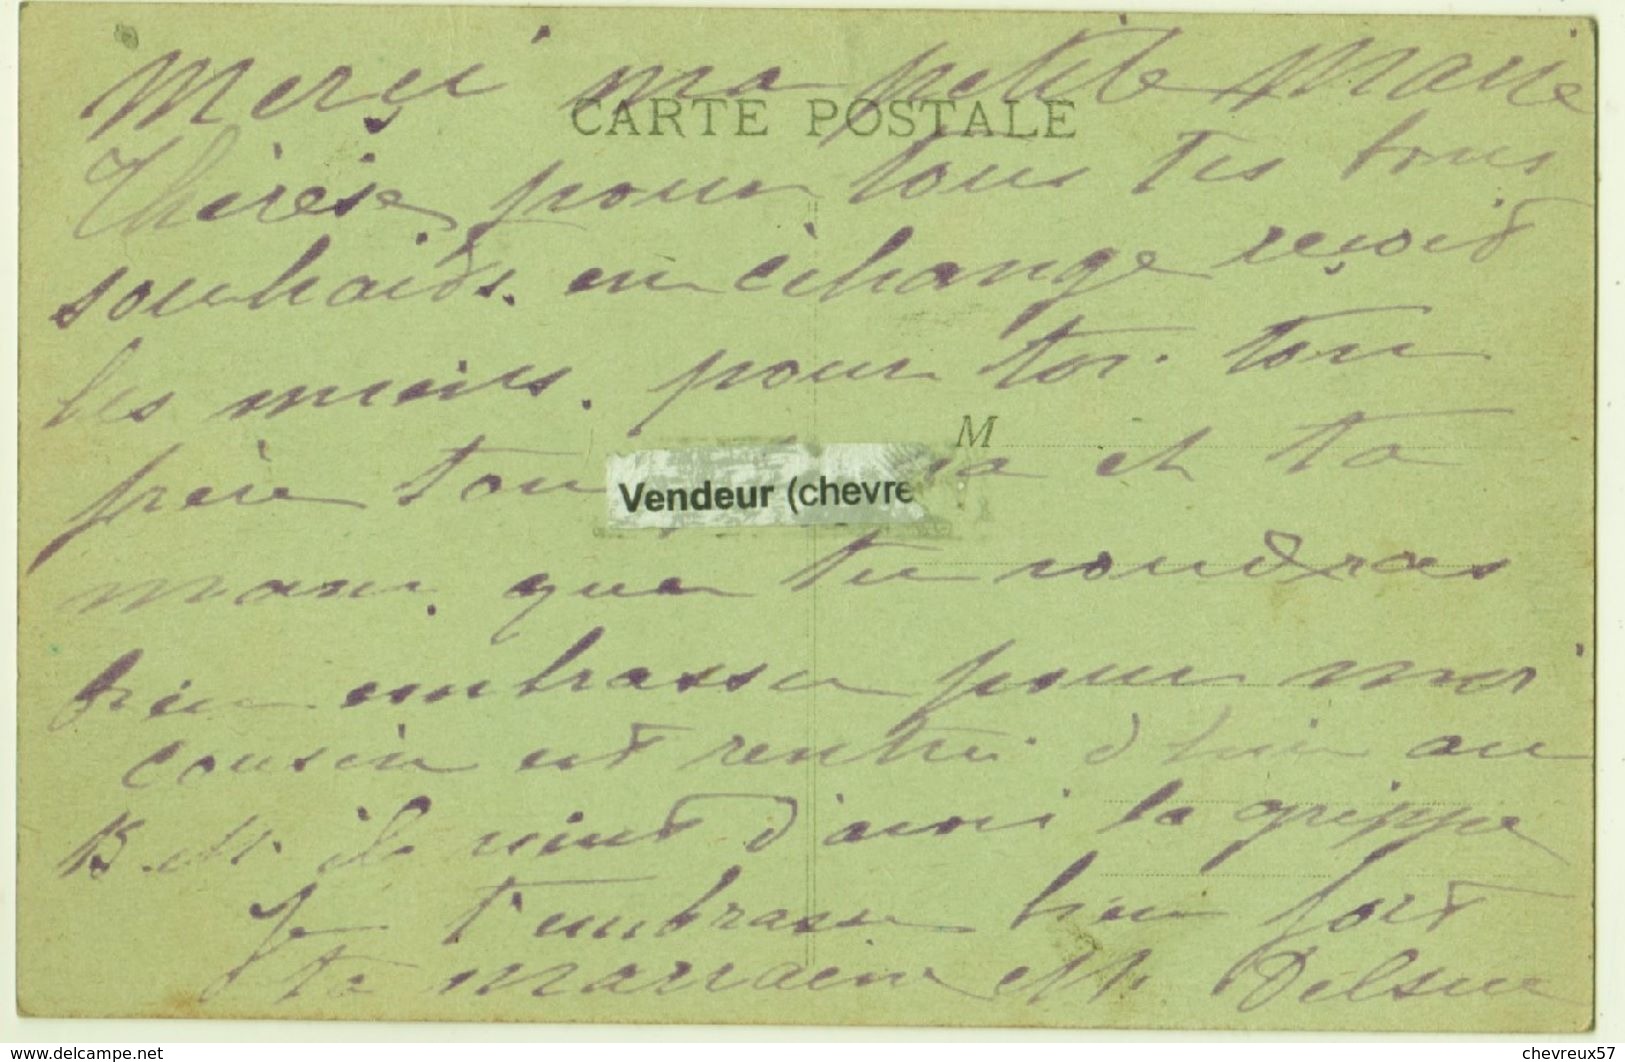 Merçi ma petite Marie
CARTE POSTALE
Thérèse pour tous tes bons
souhaids. en échange reçoid
les miens. pour toi. ton
M
frère ton et ta
Vendeur (chevre
mam. que tu voudras
bien embrasser pour moi
cousin est rentré d'hier au
il vient d'avoir la grippe
Je t'embrasse bien fort
ta marraine M.
www.delcampe.net
chevreux57